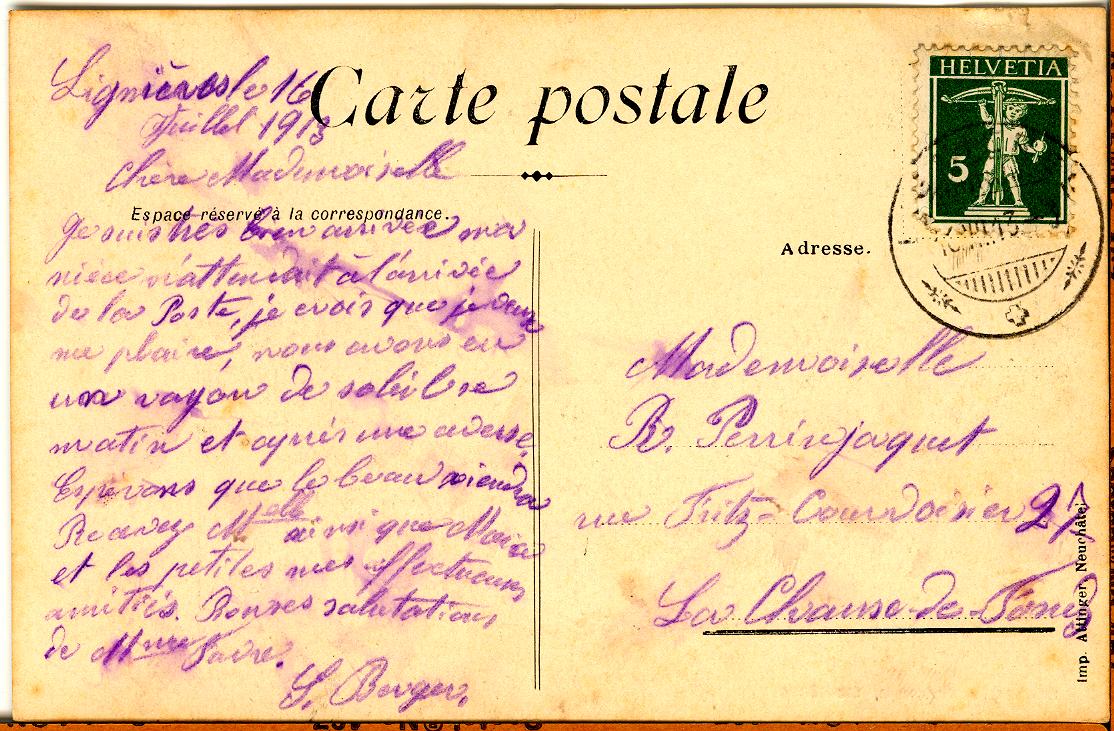 Carte postale
Lignières le 16
Juillet 1913
Chère Mademoiselle
Espace réservé à la correspondance.
Je suis très bien arrivée ma
nièce m'attendait à l'arrivée
de la Poste, je crois que je veux
me plaire, nous avons eu
un rayon de soleil se
matin et après une averse.
Espérons que le beau viendra
Recevez Melle ainsi que Maria
et les petites mes affectueuses
amitiés. Bonnes salutations
de Mme Favre.
S. Berger.
HELVETIA
5
Adresse.
Mademoiselle
R. Perrinjaquet
rue Fritz-Courvoisier 21
La Chaux-de-Fonds
Imp. Attinger, Neuchâtel